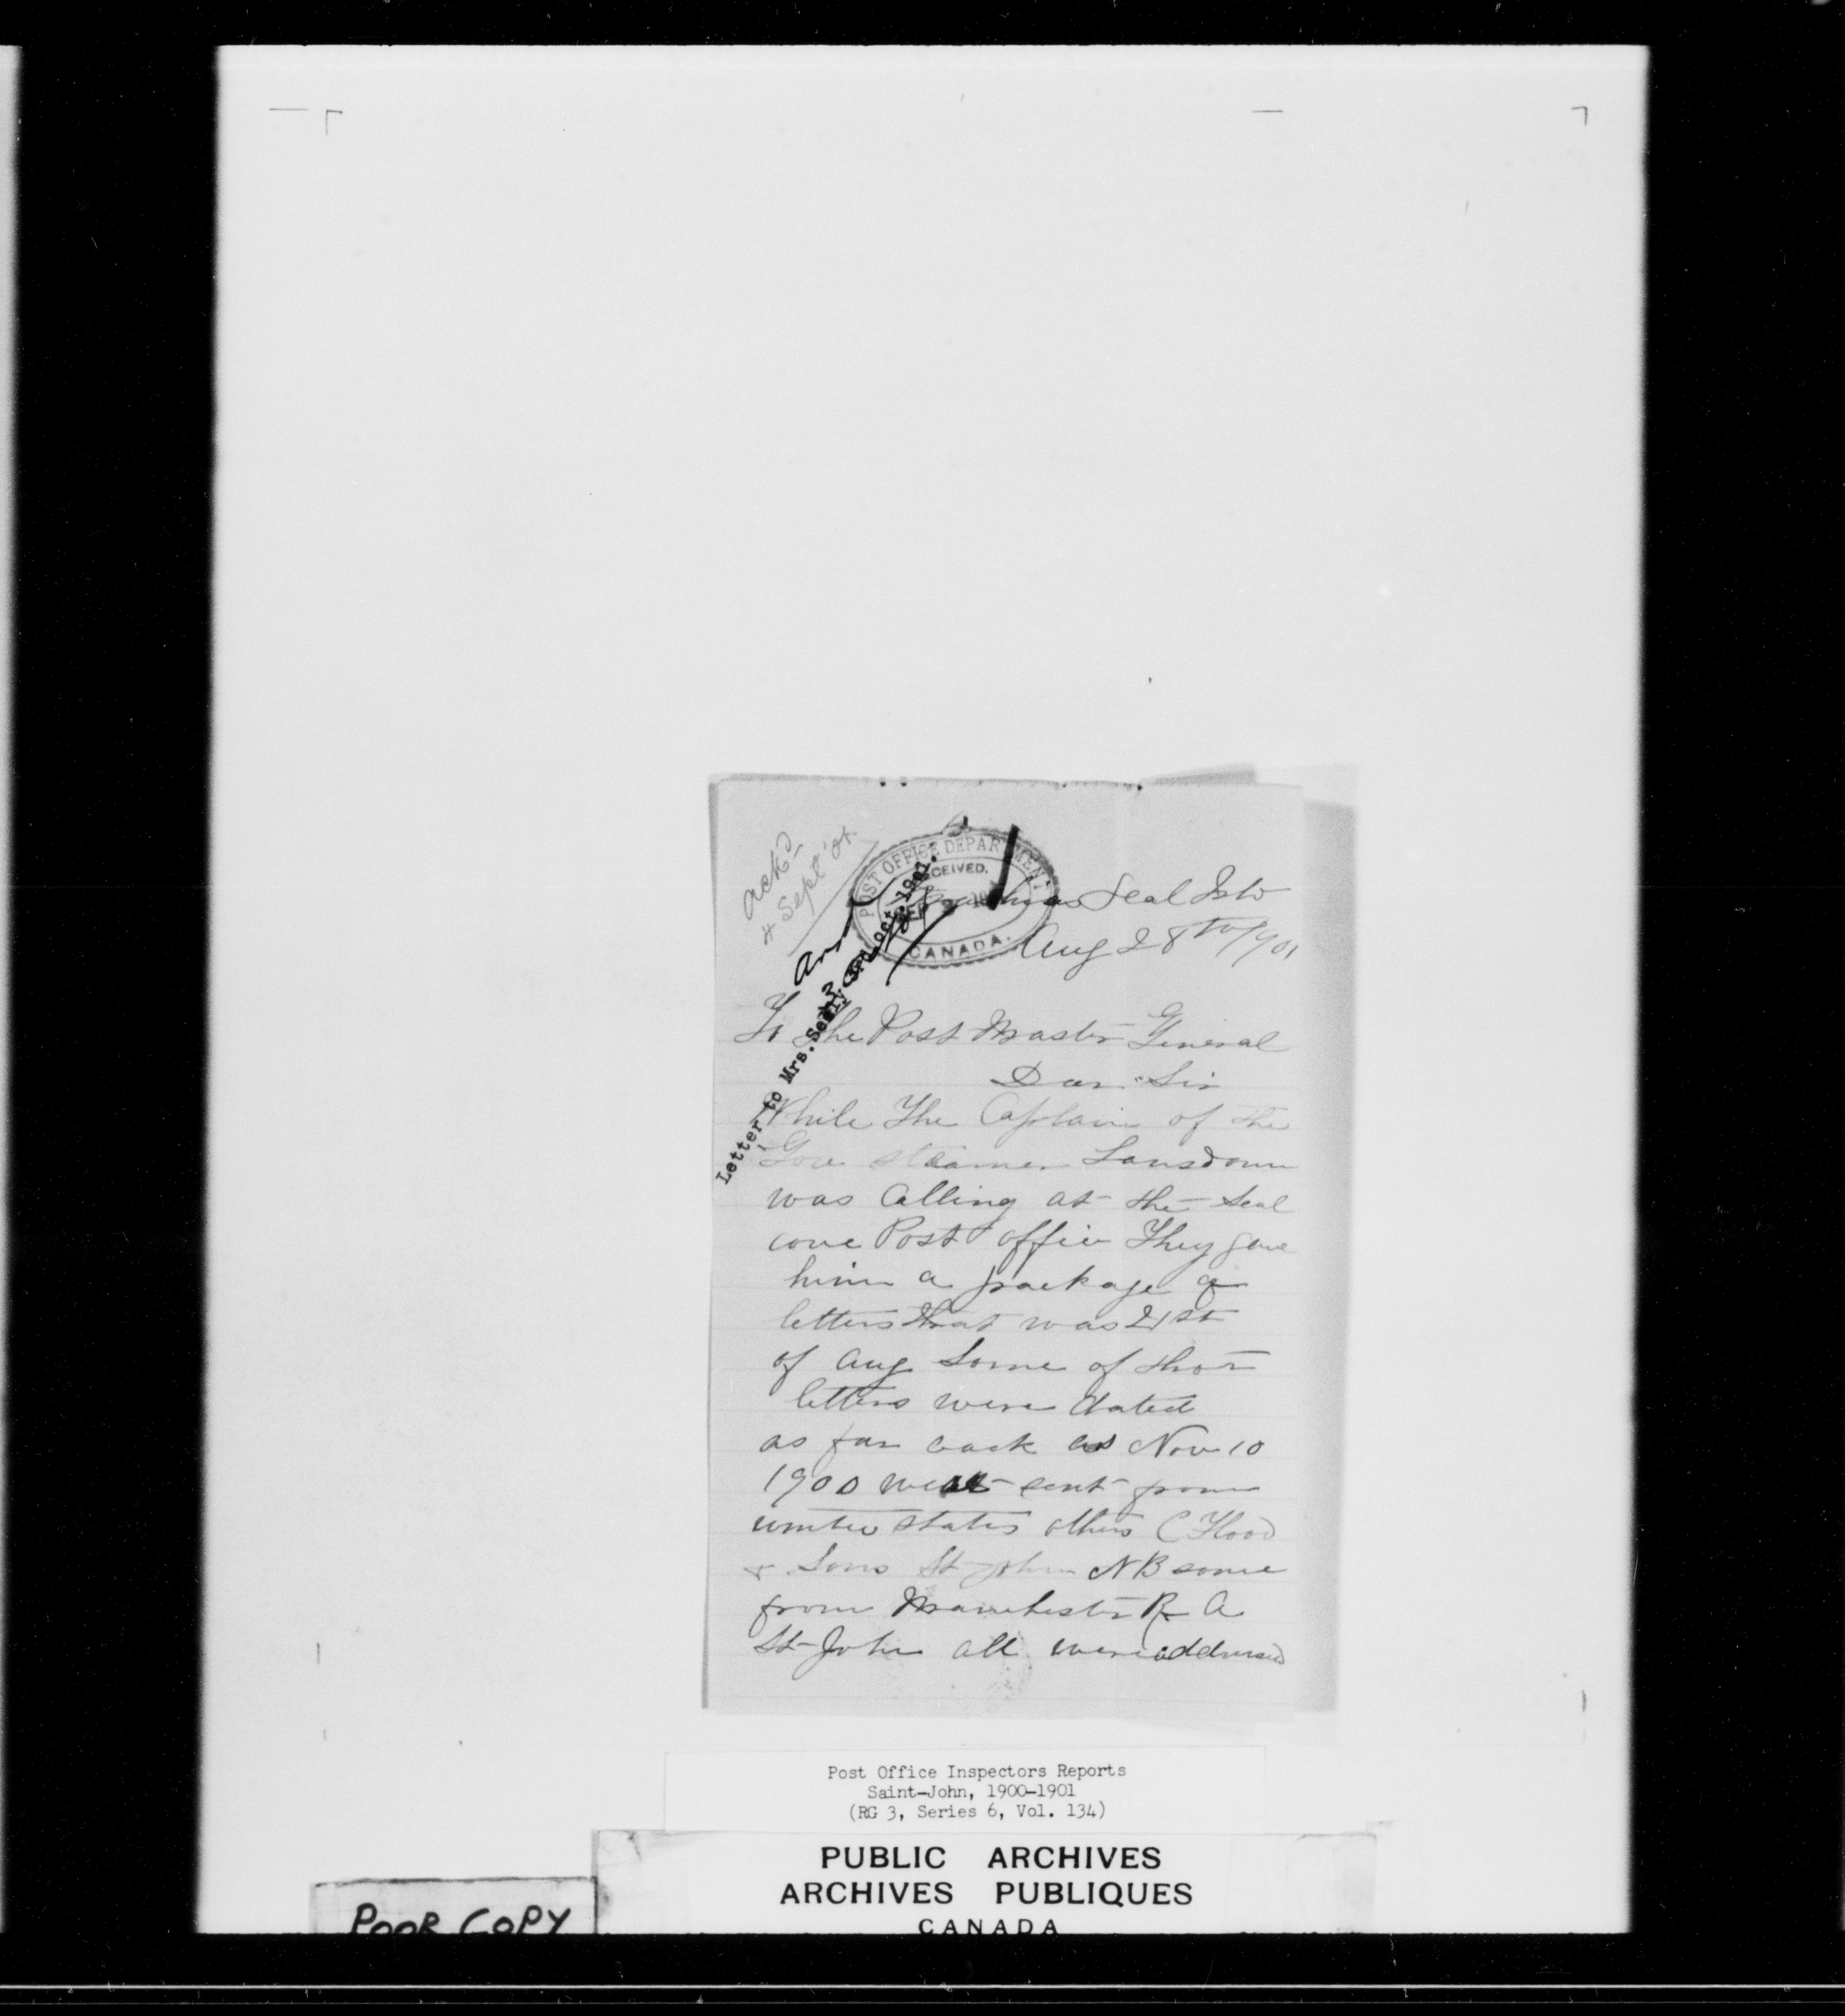 ackd
4 Sept '01
POST OFFICE DEPARTMENT
RECEIVED.
SEP
CANADA.
Ans
Letter to Mrs. Sealy 3rd Oct. 1901.
Machias Seal Isld
Aug 28th/901
To The Post Master General
Dear Sir
While The Captain of the
Gov steamer Lansdown
was Calling at the Seal
cove Post office They gave
him a package of
letters that was 21st
of Aug Some of those
letters were dated
as far back as Nov 10
1900 were sent from
united states others C Flood
& Sons St John NB some
from Manchester R A
St John all were addressed
Post Office Inspectors Reports
Saint-John, 1900-1901
(RG 3, Series 6, Vol. 134)
PUBLIC ARCHIVES
ARCHIVES PUBLIQUES
CANADA
POOR COPY